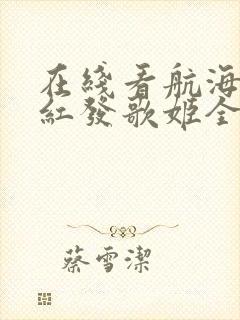 在綫看航海
紅發歌姬全
蔡雪潔